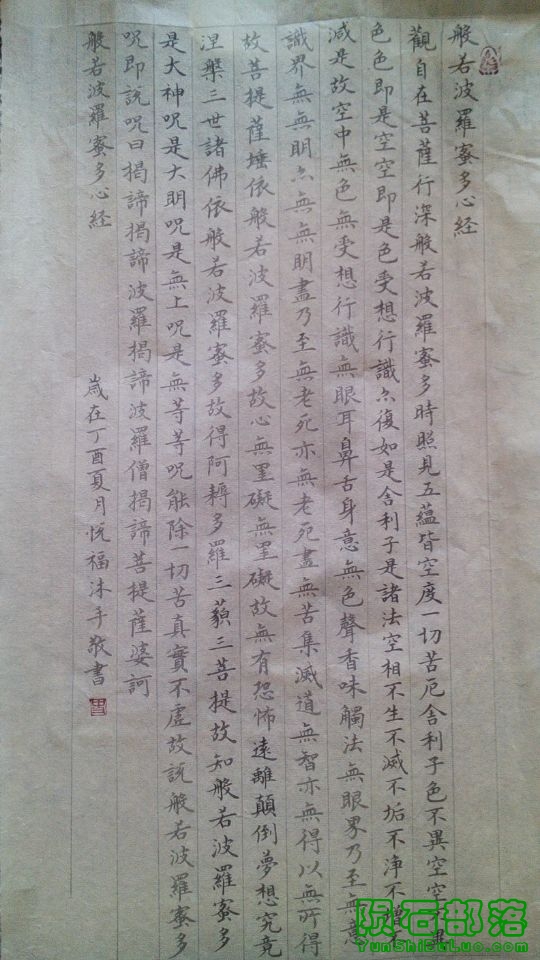 般若波羅蜜多心经
觀自在菩薩行深般若波羅蜜多時照見五蘊皆空度一切苦厄舎利子色不異空空不異
色色即是空空即是色受想行識亦復如是舎利子是諸法空相不生不滅不垢不浄不增不
减是故空中無色無受想行識無眼耳鼻舌身意無色聲香味觸法無眼界乃至無意
識界無無明亦無無明盡乃至無老死亦無老死盡無苦集滅道無智亦無得以無所得
故菩提薩埵依般若波羅蜜多故心無罣礙無罣礙故無有恐怖遠離顛倒夢想究竟
涅槃三世諸佛依般若波羅蜜多故得阿耨多羅三藐三菩提故知般若波羅蜜多
是大神呪是大明呪是無上呪是無等等呪能除一切苦真實不虛故説般若波羅蜜多
呪即説呪曰揭諦揭諦波羅揭諦波羅僧揭諦菩提薩婆訶
般若波羅蜜多心経
歲在丁酉夏月悦福沐手敬書
陨石部落
YunShiBuLuo.com